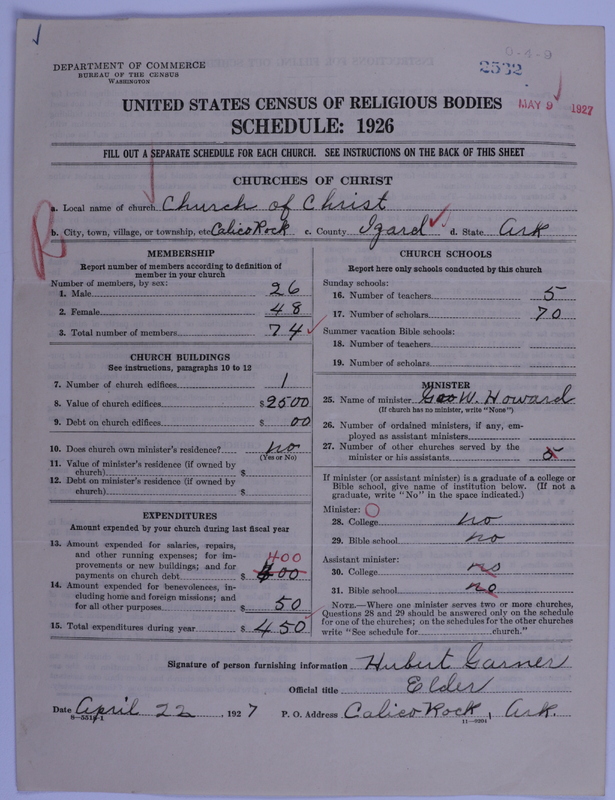 0-4-9
2532
DEPARTMENT OF COMMERCE
BUREAU OF THE CENSUS
WASHINGTON
MAY 9 1927
UNITED STATES CENSUS OF RELIGIOUS BODIES
SCHEDULE: 1926
FILL OUT A SEPARATE SCHEDULE FOR EACH CHURCH. SEE INSTRUCTIONS ON THE BACK OF THIS SHEET
CHURCHES OF CHRIST
a. Local name of church Church of Christ
b. City, town, village, or township, etc Calico Rock c. County Izard d. State Ark
R
MEMBERSHIP
Report number of members according to definition of
member in your church
Number of members, by sex:
1. Male 26
2. Female 48
3. Total number of members 74
CHURCH BUILDINGS
See instructions, paragraphs 10 to 12
7. Number of church edifices 1
8. Value of church edifices $2500
9. Debt on church edifices $ 00
10. Does church own minister's residence? no
(Yes or No)
11. Value of minister's residence (if owned by
church) $
12. Debt on minister's residence (if owned by
church) $
EXPENDITURES
Amount expended by your church during last fiscal year
13. Amount expended for salaries, repairs,
and other running expenses; for im-
provements or new buildings; and for 400
payments on church debt $ 00
14. Amount expended for benevolences, in-
cluding home and foreign missions; and
for all other purposes $ 50
15. Total expenditures during year $ 450
CHURCH SCHOOLS
Report here only schools conducted by this church
Sunday schools:
16. Number of teachers 5
17. Number of scholars 70
Summer vacation Bible schools:
18. Number of teachers
19. Number of scholars
MINISTER
25. Name of minister Geo W. Howard
(If church has no minister, write "None")
26. Number of ordained ministers, if any, em-
ployed as assistant ministers
27. Number of other churches served by the
minister or his assistants
If minister (or assistant minister) is a graduate of a college or
Bible school, give name of institution below. (If not a
graduate, write "No" in the space indicated.)
Minister:
28. College no
29. Bible school no
Assistant minister:
30. College no
31. Bible school no
NOTE.—Where one minister serves two or more churches,
Questions 28 and 29 should be answered only on the schedule
for one of the churches; on the schedules for the other churches
write "See schedule for church."
Signature of person furnishing information Hubert Garner
Official title Elder
Date April 22, 1927 P. O. Address Calico Rock, Ark.
8—5518-1 11—9204